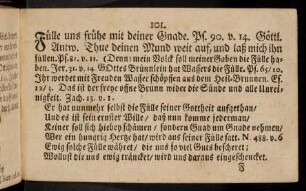 101.
Fülle uns frühe mit deiner Gnad. Ps. 90. v. 14. Göttl.
Antw. Thue deinen Mund weit auf, und laß mich ihn
füllen. Ps. 81. v. 11. (Denn: mein Volck soll meiner Gaben die Fülle ha-
ben. Jer. 31. v. 14. GOttes Brünnlein hat Wassers die Fülle. Ps. 65/10.
Ihr werdet mit Freuden Wasser schöpffen aus dem Heil-Brunnen. Es.
12/3. Das ist der freye offne Brunn wider die Sünde und alle Unrei-
nigkeit. Zach. 13. v. 1.
Er hat nunmehr selbst die Fülle seiner Gottheit aufgethan/
Und es ist sein ernster Wille/ daß nun komme jederman/
Keiner soll sich hiebey schämen/ sondern Gnad um Gnade nehmen/
Wer ein hungrig Hertze hat/ wird aus seiner Fülle satt. N. 488. v. 6
Ewig solche Fülle währet/ die uns so viel Guts bescheret;
Wollust die uns ewig träncket/ wird uns daraus eingeschencket.